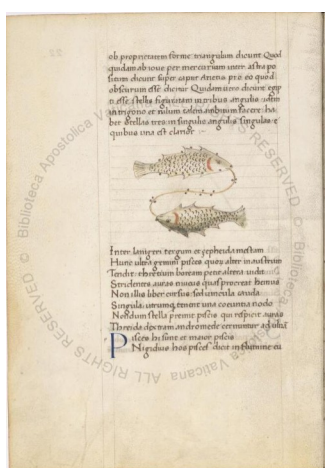 ob proprietatem forme triangulum dicunt Quod
quidam ab ioue per mercurium inter astra po
situm dicunt super caput Arietis pro eo quod
obscurum esse dicitur Quidam uero dicunt egip
ti esse stellis figuratam in tribus angulis
in trigono et nilum talem ambitum facere. ha
bet stellas tres in singulis angulis singulas e
quibus una est clarior
Inter lanigeri tergum et cepheida mestam
Hunc ultra gemini pisces quos alter in austrum
Tendit. threicium boream petit altera
Stridentes auras niueus quas procreat hemus
Non illis liber cursus. sed uincula cauda
Singula utrumque tenent una coeuntia nodo
Nexdum stella premit piscis qui respicit auras
Threicia dextram andromede cernuntur ad ulnam
Pisces hi sunt et maior piscis
Nigidius hos pisces dicit in flumine eu
© Biblioteca Apostolica Vaticana ALL RIGHTS RESERVED © Biblioteca